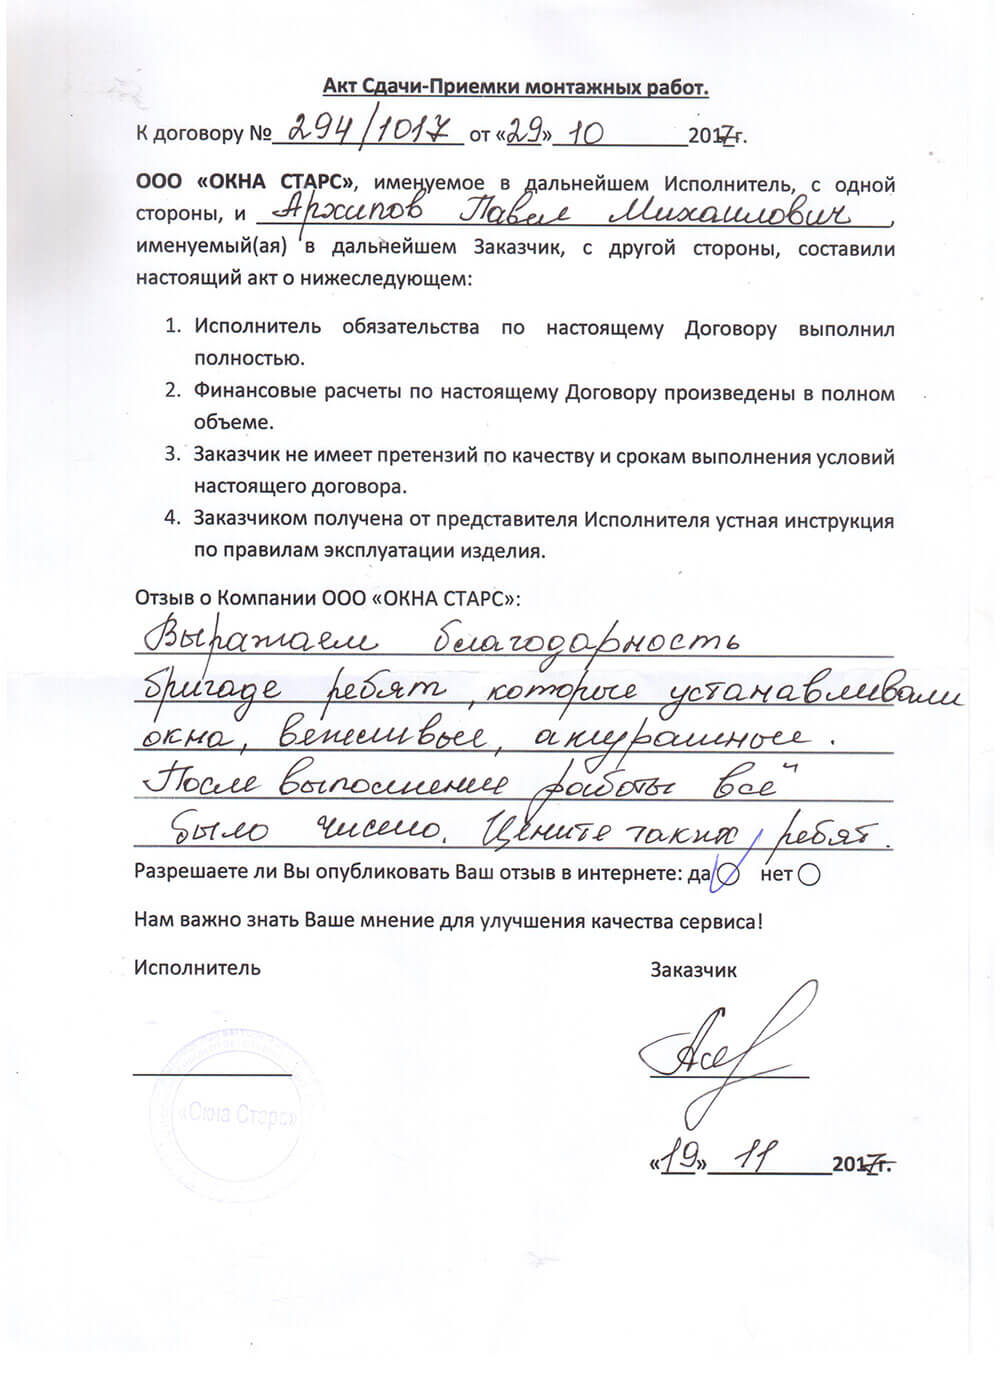 Акт Сдачи-Приемки монтажных работ.
К договору № 294/1017 от «29» 10 2017г.
ООО «ОКНА СТАРС», именуемое в дальнейшем Исполнитель, с одной
стороны, и Архипов Павел Михаилович,
именуемый(ая) в дальнейшем Заказчик, с другой стороны, составили
настоящий акт о нижеследующем:
1. Исполнитель обязательства по настоящему Договору выполнил
полностью.
2. Финансовые расчеты по настоящему Договору произведены в полном
объеме.
3. Заказчик не имеет претензий по качеству и срокам выполнения условий
настоящего договора.
4. Заказчиком получена от представителя Исполнителя устная инструкция
по правилам эксплуатации изделия.
Отзыв о Компании ООО «ОКНА СТАРС»:
Выражаем благодарность
бригаде ребят, которые устанавливали
окна, вежливые, акуратные.
После выполнение работы всё
было чисто. Цените таких ребят.
Разрешаете ли Вы опубликовать Ваш отзыв в интернете: да нет
Нам важно знать Ваше мнение для улучшения качества сервиса!
Исполнитель Заказчик
«Окна Старс»
«19» 11 2017г.